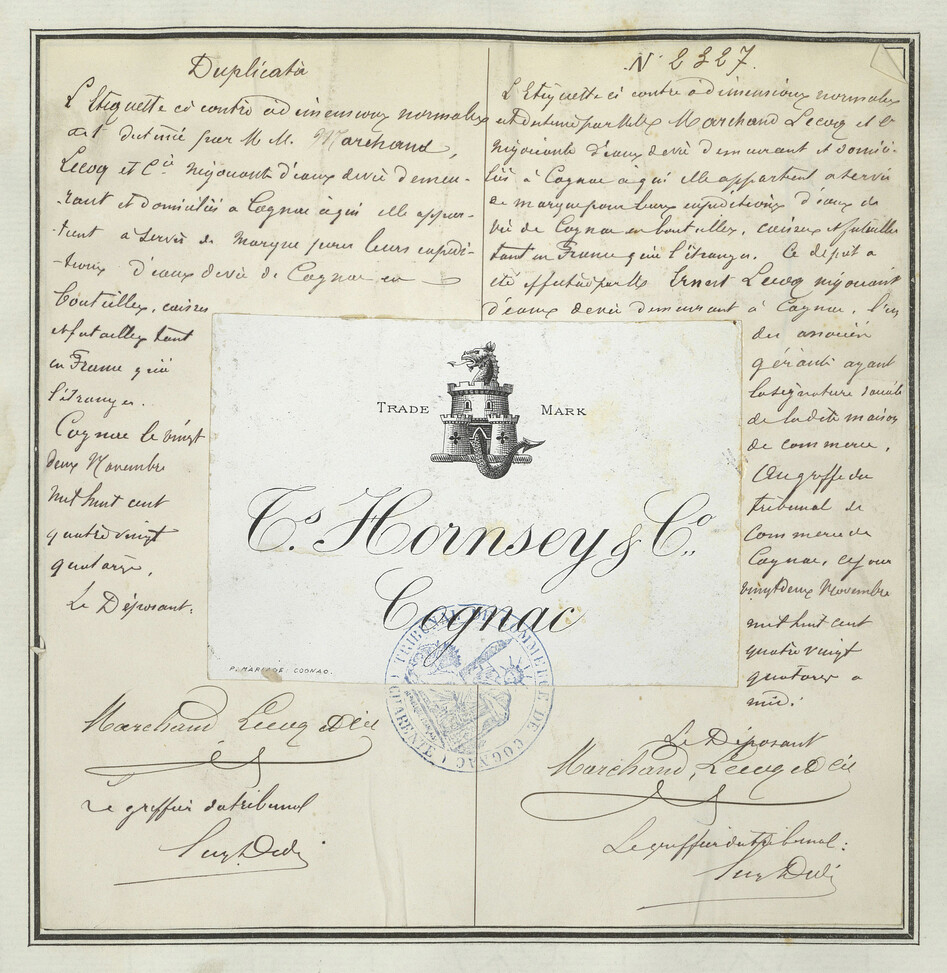 Duplicata
L'Etiquette ci contre à dimensions normales
est destinée par M M. Marchand,
Lecoq et Cie négociants d'eaux de vie demeu-
rant et domiciliés à Cognac à qui elle appar-
tient a servir de marque pour leurs expédi-
tions d'eaux de vie de Cognac en
bouteilles, caisses
et futailles tant
en France qu'à
l'étranger.
Cognac le vingt
deux Novembre
mil huit cent
quatre vingt
quatorze.
Le Déposant:
Marchand Lecoq et Cie
Le greffier du tribunal
N° 2327.
L'Etiquette ci contre à dimensions normales
est destinée par MM. Marchand Lecoq et Cie
négociants d'eaux de vie demeurant et domici-
liés à Cognac à qui elle appartient a servir
de marque pour leurs expéditions d'eaux de
vie de Cognac en bouteilles, caisses et futailles
tant en France qu'à l'étranger. Ce dépôt a
été effectué par M Ernest Lecoq négociant
d'eaux de vie demeurant à Cognac, l'un
des associés
gérants ayant
la signature sociale
de la dite maison
de commerce.
Au greffe du
tribunal de
Commerce de
Cognac, ce jour
vingt deux Novembre
mil huit cent
quatre vingt
quatorze à
midi.
Le Déposant
Marchand, Lecoq et Cie
Le greffier du tribunal:
TRADE MARK
Ts. Hornsey & Co.
Cognac
P. MARIAGE. COGNAC.
TRIBUNAL DE COMMERCE DE COGNAC (CHARENTE)